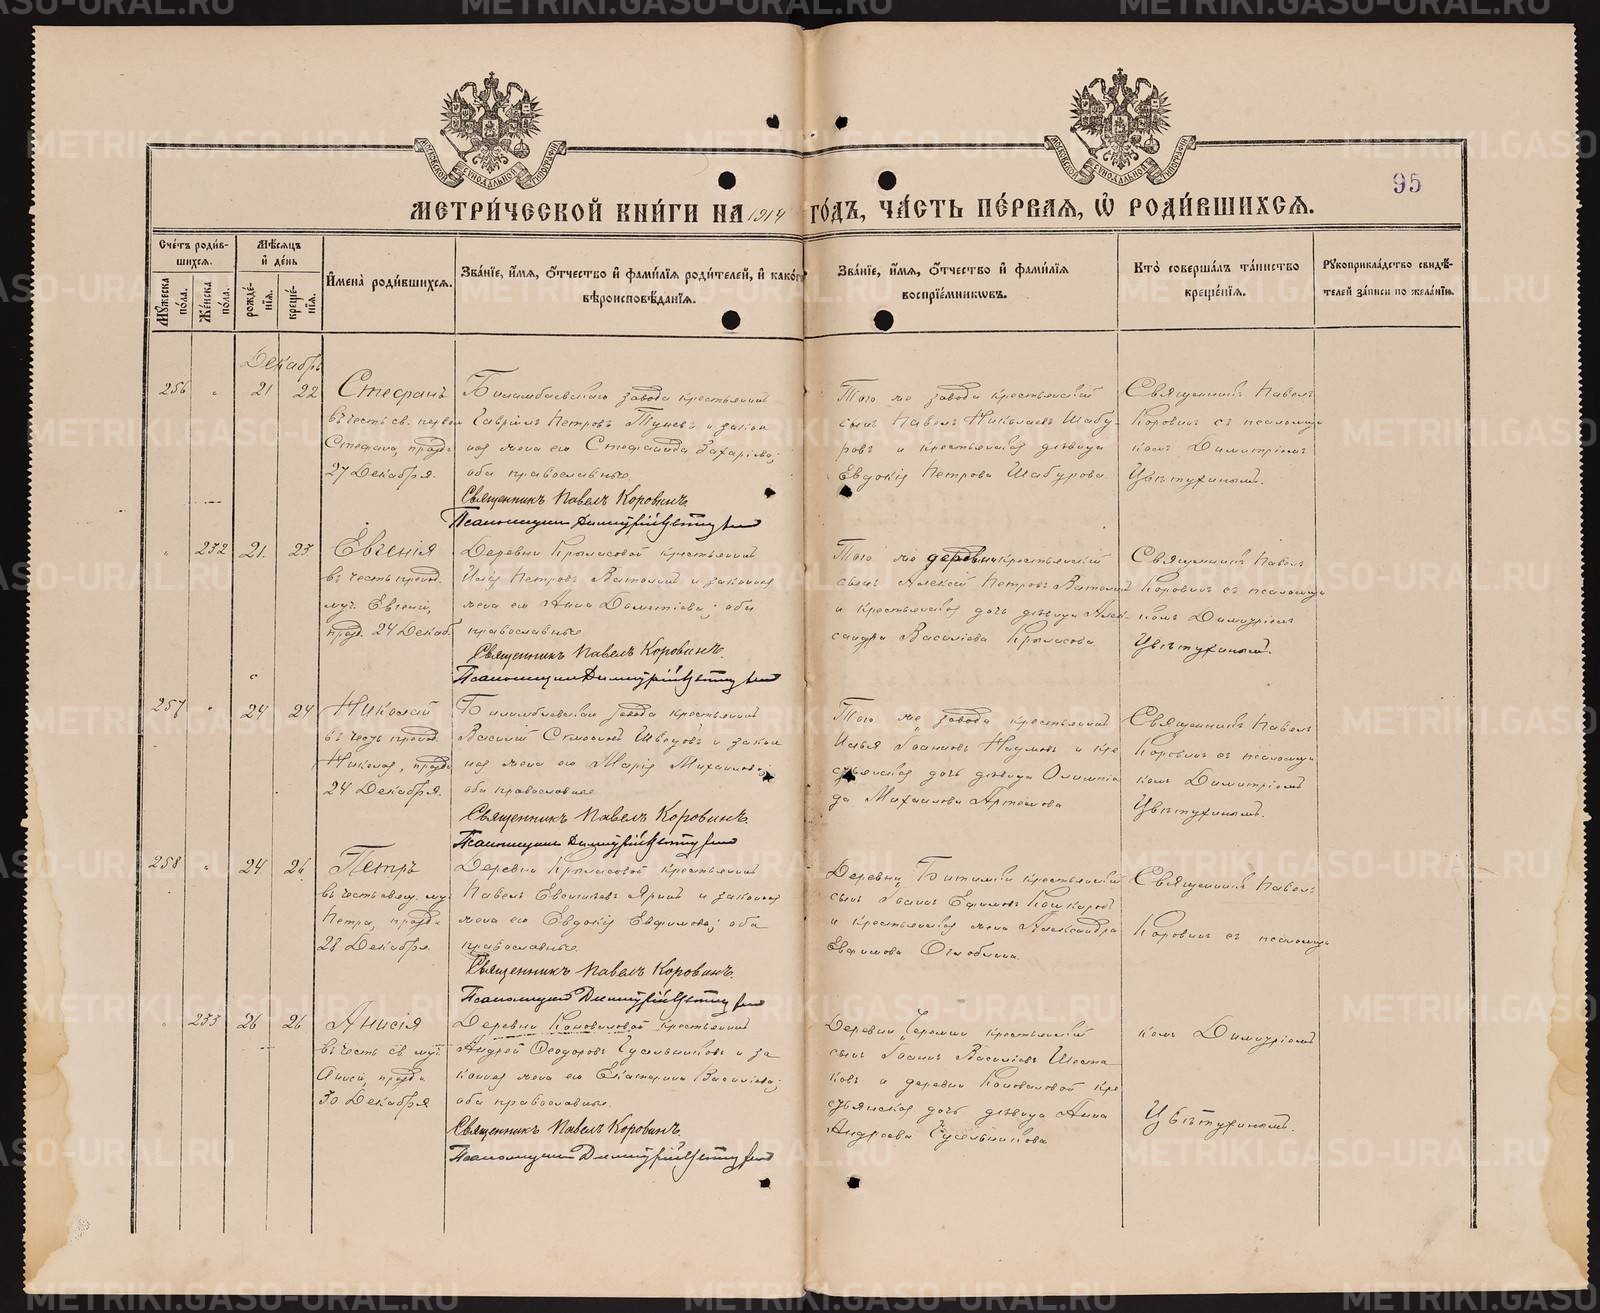 95
МЕТРИ́ЧЕСКОЙ КНИ́ГИ НА 1914 ГО́ДЪ, ЧА́СТЬ ПЕ́РВАЯ, Ѡ РОДИ́ВШИХСЯ.
Сче́тъ роди́вшихся.
Мꙋ́жеска по́ла.
Же́нска по́ла.
Мѣ́сяцъ и́ де́нь
рожде́нїѧ.
креще́нїѧ.
И҆мена̀ роди́вшихсѧ.
Зва́нїе, и҆́мѧ, ѻ҆́тчество и҆ фами́лїѧ роди́телей, и҆ како́гѡ
вѣроисповѣ́данїѧ.
Зва́нїе, и҆́мѧ, ѻ҆́тчество и҆ фами́лїѧ
воспрїе́мникѡвъ.
Кто̀ соверша́лъ та́инство
креще́нїѧ.
Рꙋкоприкла́дство свидѣ́-
телей за́писи по жела́нїю.
Декабрь
256 21 22 Стефанъ
въ честь св. перво
Стефана, празд.
27 Декабря.
Билимбаевскаго завода крестьянинъ
Гавріилъ Петровъ и закон
ная жена его Стефанида Захаріева;
оба православные.
Священникъ Павелъ Коровинъ.
Псаломщикъ Димитрій Цвѣтухинъ
Того же завода крестьянскій
сынъ Павелъ Николаевъ Шабу-
ровъ и крестьянская дѣвица
Евдокія Петрова Шабурова
Священникъ Павелъ
Коровинъ съ псаломщи
комъ Димитріемъ
Цвѣтухинымъ.
232 21. 23 Евгенія
въ честь препод.
муч. Евгеніи,
празд. 24 Декаб.
Деревни Крыласовой крестьянинъ
Илія Петровъ и законная
жена его Анна Дометіева; оба
православные
Священникъ Павелъ Коровинъ.
Псаломщикъ Димитрій Цвѣтухинъ
Того же деревни крестьянскій
сынъ Алексій Петровъ
и крестьянская дочь дѣвица Алек-
сандра Василіева Крыласова
Священникъ Павелъ
Коровинъ съ псаломщи
комъ Димитріемъ
Цвѣтухинымъ.
257 24 24 Николай
въ честь препод.
Николая, празд.
24 Декабря.
Билимбаевскаго завода крестьянинъ
Василій Швецовъ и закон
ная жена его Марія Михаилова;
оба православные
Священникъ Павелъ Коровинъ.
Псаломщикъ Димитрій Цвѣтухинъ
Того же завода крестьянинъ
Илья Іоанновъ Наумовъ и кре
стьянская дочь дѣвица Олимпіа
да Михаилова Артемова
Священникъ Павелъ
Коровинъ съ псаломщи
комъ Димитріемъ
Цвѣтухинымъ.
258 24 26 Петръ
въ честь му.
Петра, празд.
28 Декабря.
Деревни Крыласовой крестьянинъ
Павелъ Яринъ и законная
жена его Евдокія Евфимова; оба
православные.
Священникъ Павелъ Коровинъ.
Псаломщикъ Димитрій Цвѣтухинъ
Деревни Битимки крестьянскій
сынъ Іоаннъ Ефимовъ Кошкаровъ
и крестьянская жена Александра
Евфимова Оглоблина.
Священникъ Павелъ
Коровинъ съ псаломщи
233 26 26 Анисія
въ честь св. муч.
Анисіи, празд.
30 Декабря
Деревни Коноваловой крестьянинъ
Андрей Ѳеодоровъ Гусельниковъ и за
конная жена его Екатерина Василіева;
оба православные.
Священникъ Павелъ Коровинъ.
Псаломщикъ Димитрій Цвѣтухинъ
Деревни Черемши крестьянскій
сынъ Іоаннъ Василіевъ Шеста
ковъ и деревни Коноваловой кре
стьянская дочь дѣвица Анна
Андреева Гусельникова
комъ Димитріемъ
Цвѣтухинымъ.
METRIKI.GASO-URAL.RU